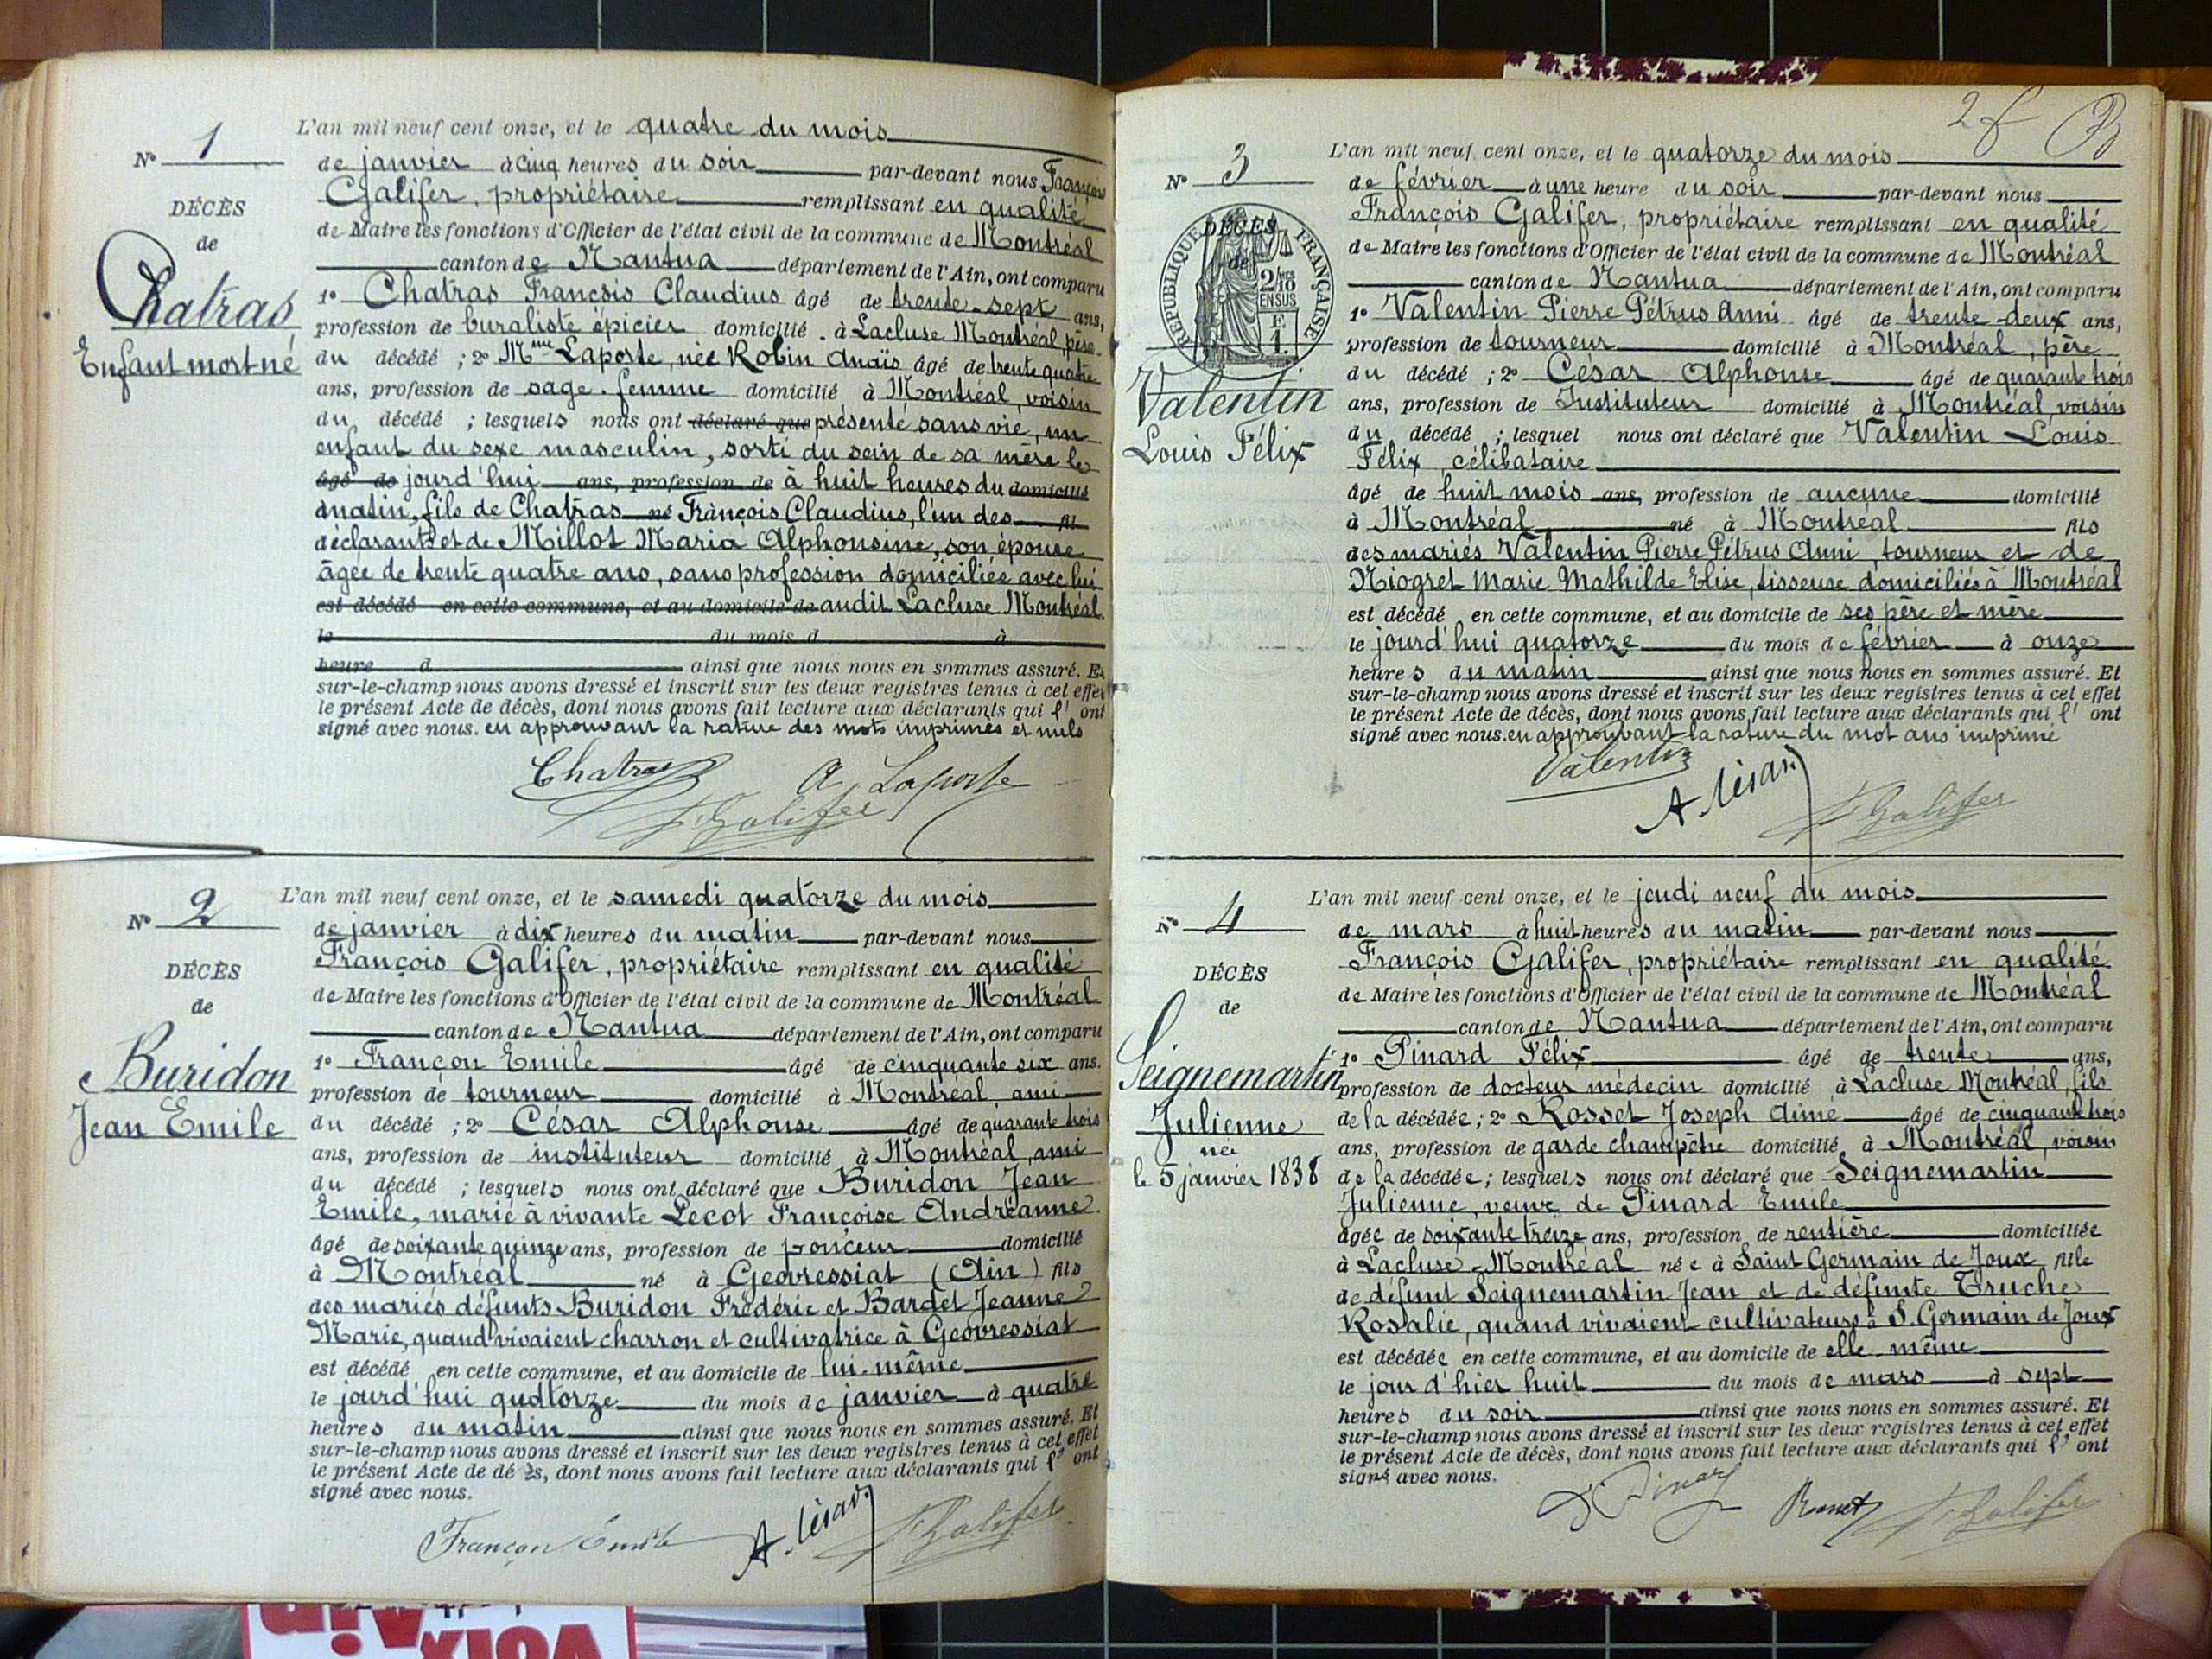 L'an mil neuf cent onze, et le quatre du mois
N° 1
de janvier à cinq heures du soir par-devant nous François
Galifer, propriétaire remplissant en qualité
DÉCÈS
de Maire les fonctions d'Officier de l'état civil de la commune de Montréal
de
canton de Nantua département de l'Ain, ont comparu
Chatras
1° Chatras François Claudius âgé de trente-sept ans,
profession de buraliste épicier domicilié à Lacluse Montréal, père
Enfant mort né
du décédé ; 2° Mme Laposte, née Robin Anaïs âgé de trente quatre
ans, profession de sage-femme domicilié à Montréal, voisin
du décédé ; lesquels nous ont déclaré que présenté sans vie, un
enfant du sexe masculin, sorti du sein de sa mère le
âgé de jourd'hui ans, profession de à huit heures du domicilié
matin, fils de Chatras né François Claudius, l'un des fil
déclarants et de Millot Maria Alphonsine, son épouse
âgée de trente quatre ans, sans profession domiciliée avec lui
est décédé en cette commune, et au domicile de audit Lacluse Montréal.
le du mois d à
heure d ainsi que nous nous en sommes assuré. Et
sur-le-champ nous avons dressé et inscrit sur les deux registres tenus à cet effet
le présent Acte de décès, dont nous avons fait lecture aux déclarants qui l' ont
signé avec nous. en approuvant la rature des mots imprimés et nuls
Chatras A. Laposte
F. Galifer
L'an mil neuf cent onze, et le samedi quatorze du mois
N° 2
de janvier à dix heures du matin par-devant nous
François Galifer, propriétaire remplissant en qualité
DÉCÈS
de Maire les fonctions d'Officier de l'état civil de la commune de Montréal
de
canton de Nantua département de l'Ain, ont comparu
1° Françon Emile âgé de cinquante six ans.
Buridon
profession de tourneur domicilié à Montréal ami
Jean Emile
du décédé ; 2° César Alphonse âgé de quarante trois
ans, profession de instituteur domicilié à Montréal, ami
du décédé ; lesquels nous ont déclaré que Buridon Jean
Emile, marié à vivante Lecot Françoise Andréanne.
âgé de soixante quinze ans, profession de ponceur domicilié
à Montréal né à Geovressiat (Ain) fils
des mariés défunts Buridon Frédéric et Bardet Jeanne
Marie, quand vivaient charron et cultivatrice à Geovressiat
est décédé en cette commune, et au domicile de lui-même
le jourd'hui quatorze du mois de janvier à quatre
heures du matin ainsi que nous nous en sommes assuré. Et
sur-le-champ nous avons dressé et inscrit sur les deux registres tenus à cet effet
le présent Acte de dé ès, dont nous avons fait lecture aux déclarants qui l' ont
signé avec nous.
Françon Emile A. César F. Galifer
2 f
L'an mil neuf cent onze, et le quatorze du mois
N° 3
de février à une heure du soir par-devant nous
François Galifer, propriétaire remplissant en qualité
DÉCÈS
de
RÉPUBLIQUE FRANÇAISE
2/10 EN SUS
E
1.
de Maire les fonctions d'Officier de l'état civil de la commune de Montréal
canton de Nantua département de l'Ain, ont comparu
1° Valentin Pierre Pétrus Anni âgé de trente-deux ans,
profession de tourneur domicilié à Montréal, père
Valentin
Louis Félix
du décédé ; 2° César Alphonse âgé de quarante trois
ans, profession de Instituteur domicilié à Montréal, voisin
du décédé ; lesquel nous ont déclaré que Valentin Louis
Félix, célibataire
âgé de huit mois ans, profession de aucune domicilié
à Montréal né à Montréal fils
des mariés Valentin Pierre Pétrus Anni, tourneur et de
Niogret Marie Mathilde Elise, tisseuse domiciliés à Montréal
est décédé en cette commune, et au domicile de ses père et mère
le jourd'hui quatorze du mois de février à onze
heures du matin ainsi que nous nous en sommes assuré. Et
sur-le-champ nous avons dressé et inscrit sur les deux registres tenus à cet effet
le présent Acte de décès, dont nous avons fait lecture aux déclarants qui l' ont
signé avec nous. en approuvant la rature du mot ans imprimé
Valentin
A. César F. Galifer
L'an mil neuf cent onze, et le jeudi neuf du mois
N° 4
de mars à huit heures du matin par-devant nous
François Galifer, propriétaire remplissant en qualité
DÉCÈS
de Maire les fonctions d'Officier de l'état civil de la commune de Montréal
de
canton de Nantua département de l'Ain, ont comparu
Seignemartin
1° Pinard Félix âgé de trente ans,
profession de docteur médecin domicilié à Lacluse Montréal, fils
Julienne
de la décédée ; 2° Rosset Joseph Aimé âgé de cinquante trois
née
ans, profession de garde champêtre domicilié à Montréal, voisin
le 5 janvier 1838
de la décédée ; lesquels nous ont déclaré que Seignemartin
Julienne, veuve de Pinard Emile
âgée de soixante treize ans, profession de rentière domiciliée
à Lacluse-Montréal née à Saint Germain de Joux fille
de défunt Seignemartin Jean et de défunte Truche
Rosalie, quand vivaient cultivateurs à S. Germain de Joux
est décédée en cette commune, et au domicile de elle-même
le jour d'hier huit du mois de mars à sept
heures du soir ainsi que nous nous en sommes assuré. Et
sur-le-champ nous avons dressé et inscrit sur les deux registres tenus à cet effet
le présent Acte de décès, dont nous avons fait lecture aux déclarants qui l' ont
signé avec nous.
F. Pinard Rosset F. Galifer
VOIX